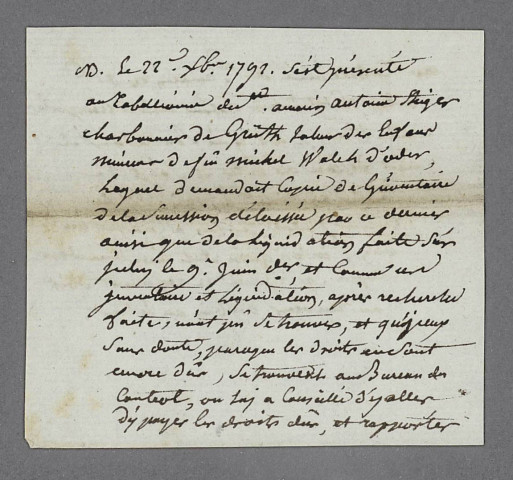 Le 22e Xbre 1792. s'est présenté
au Tabellioné de antoine
charbonnier de tuteur des Enfans
mineurs de feu michel Walch d'oder,
Lequel demandoit Copie de Linventaire
de la Succession délaissée par ce dernier
ainsi que de la Liquidation faite sur
le 9e Juin der et Comme
inventaire et Liquidation, après recherche
faite, n'ont pû se trouver, et
Sans doute, parceque les droits en Sont
encore dûs, se trouvent au Bureau de
Controt, on Luy a Conseillé d'y aller
d'y payer les droits dûs, et rapporter